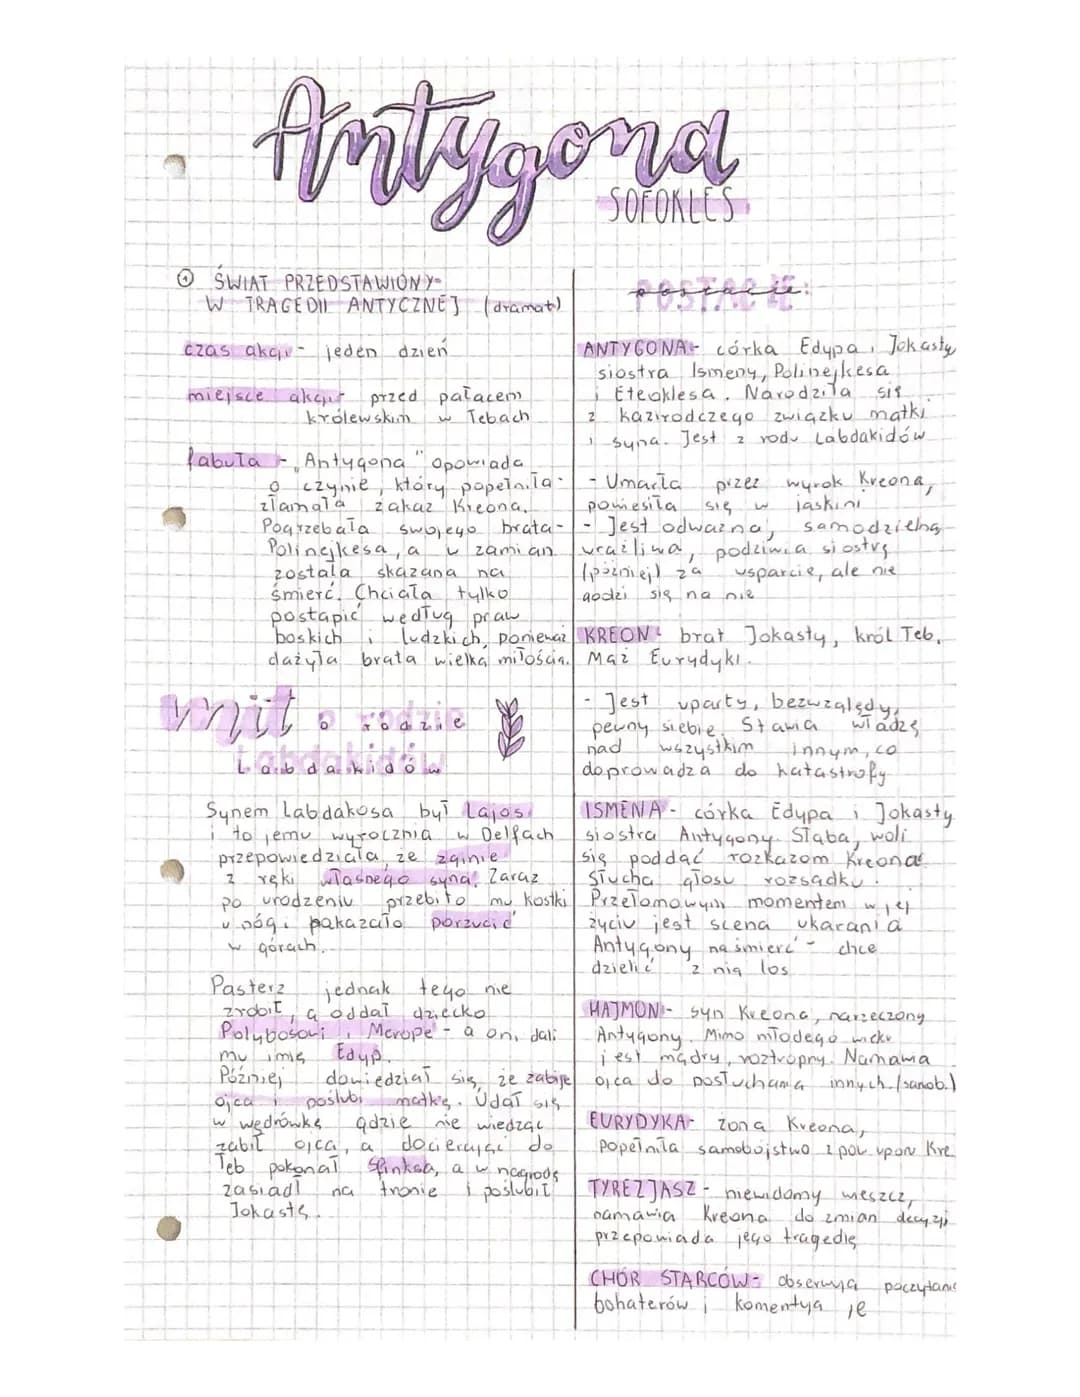 Antygona
SOFOKLES
1 ŚWIAT PRZEDSTAWIONY-
W TRAGEDII ANTYCZNEJ (dramat)
czas akcji - jeden dzień
miejsce akcji- przed pałacem
królewskim w Tebach
fabuła - „Antygona" opowiada
o czynie, który popełniła-
złamała zakaz Kreona.
Pogrzebała swojego brata-
Polinejkesa, a w zamian
została skazana na
śmierć. Chciała tylko
postąpić według praw
boskich i ludzkich, ponieważ
dażyła brata wielką miłością.
mit o rodzie
Labdakidów
Synem Labdakosa był Lajos
i to jemu wyrocznia w Delfach
przepowiedziała, że zginie
z ręki własnego syna. Zaraz
po urodzeniu przebito mu kostki
u nóg i pakazało porzucić
w górach.
Pasterz jednak tego nie
zrobił, a oddał dziecko
Polybosowi i Merope - a oni dali
mu imię Edyp.
Później dowiedział się, że zabije
ojca i poślubi matkę. Udał się
w wędrówkę gdzie nie wiedząc
zabił ojca, a docierając do
Teb pokonał Sfinksa, a w nagrodę
zasiadł na tronie i poślubił
Jokastę.
postacie:
ANTYGONA- córka Edypa i Jokasty
siostra Ismeny, Polinejkesa
i Eteoklesa. Narodziła się
z kazirodczego związku matki
i syna. Jest z rodu Labdakidów
- Umarła przez wyrok Kreona,
powiesiła się w jaskini
- Jest odważna, samodzielna
wrażliwa, podziwia siostrę
(później) za wsparcie, ale nie
godzi się na nie
KREON- brat Jokasty, król Teb.
Mąż Eurydyki.
- Jest uparty, bezwzględy,
pewny siebie. Stawia władzę
nad wszystkim innym, co
doprowadza do katastrofy
ISMENA- córka Edypa i Jokasty
siostra Antygony. Słaba, woli
się poddać rozkazom Kreona.
Słucha głosu rozsądku.
Przełomowym momentem w jej
życiu jest scena ukarania
Antygony na śmierć - chce
dzielić z nią los
HAJMON- syn Kreona, narzeczony
Antygony. Mimo młodego wieku
jest mądry, roztropny. Namawa
ojca do posłuchania innych. (samob.)
EURYDYKA- żona Kreona,
popełniła samobójstwo z pow. upor. Kre
TYREZJASZ- niewidomy wieszcz,
namawia Kreona do zmian decyzji
przepowiada jego tragedię
CHÓR STARCÓW- obserwują poczytanie
bohaterów i komentują je